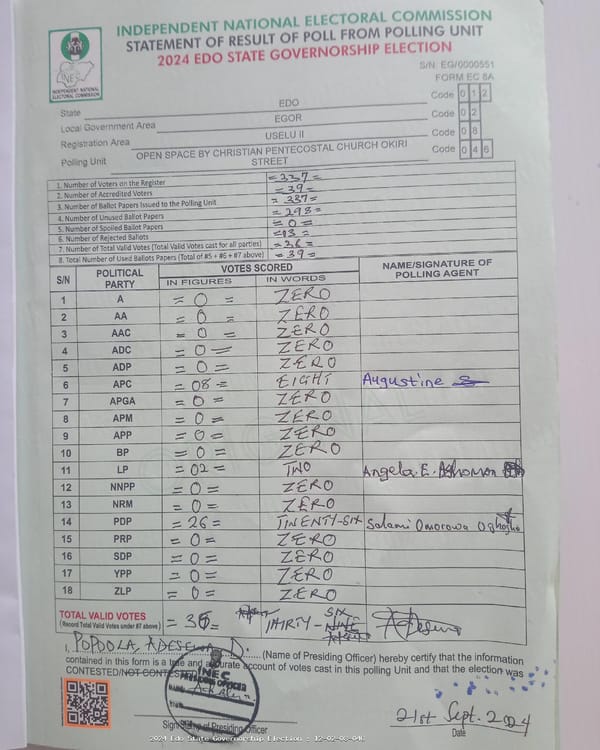 INDEPENDENT NATIONAL ELECTORAL COMMISSION
STATEMENT OF RESULT OF POLL FROM POLLING UNIT
2024 EDO STATE GOVERNORSHIP ELECTION
INEC
INDEPENDENT NATIONAL ELECTORAL COMMISSION
S/N: EG/0000551
FORM EC 8A
State EDO Code 0 1 2
Local Government Area EGOR Code 0 2
Registration Area USELU II Code 0 8
Polling Unit OPEN SPACE BY CHRISTIAN PENTECOSTAL CHURCH OKIRI STREET Code 0 4 6
1. Number of Voters on the Register =337=
2. Number of Accredited Voters =39=
3. Number of Ballot Papers Issued to the Polling Unit =337=
4. Number of Unused Ballot Papers =298=
5. Number of Spoiled Ballot Papers =0=
6. Number of Rejected Ballots =03=
7. Number of Total Valid Votes (Total Valid Votes cast for all parties) =36=
8. Total Number of Used Ballots Papers (Total of #5 + #6 + #7 above) =39=
S/N POLITICAL PARTY VOTES SCORED NAME/SIGNATURE OF POLLING AGENT
IN FIGURES IN WORDS
1 A =0= ZERO
2 AA =0= ZERO
3 AAC =0= ZERO
4 ADC =0= ZERO
5 ADP =0= ZERO
6 APC =08= EIGHT Augustine
7 APGA =0= ZERO
8 APM =0= ZERO
9 APP =0= ZERO
10 BP =0= ZERO
11 LP =02= TWO Angela. E.
12 NNPP =0= ZERO
13 NRM =0= ZERO
14 PDP =26= TWENTY-SIX Salami Omorowa
15 PRP =0= ZERO
16 SDP =0= ZERO
17 YPP =0= ZERO
18 ZLP =0= ZERO
TOTAL VALID VOTES =36= THIRTY-SIX
(Record Total Valid Votes under #7 above)
I, POPOOLA, ADESEWA D. (Name of Presiding Officer) hereby certify that the information
contained in this form is a true and accurate account of votes cast in this polling Unit and that the election was
CONTESTED/NOT CONTESTED
INEC
PRESIDING OFFICER
Sign/ of Presiding Officer
21st Sept. 2024
Date
2024 Edo State Governorship Election - 12-02-08-046